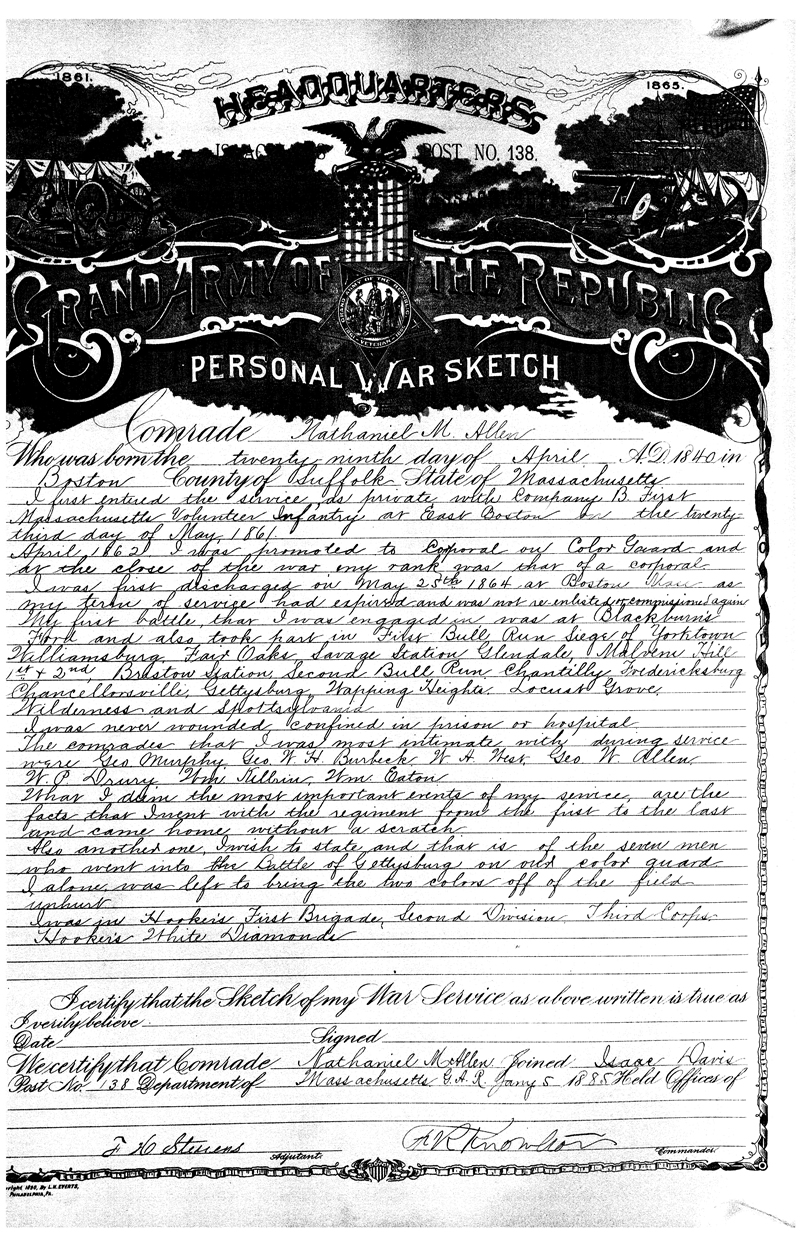 1861.
1865.
HEADQUARTERS
POST NO. 138.
GRAND ARMY OF THE REPUBLIC
GRAND ARMY OF THE REPUBLIC
VETERAN
PERSONAL WAR SKETCH
Comrade Nathaniel M. Allen
Who was born the twenty ninth day of April A.D. 1840 in
Boston County of Suffolk State of Massachusetts
I first entered the service as private with Company B. First
Massachusetts Volunteer Infantry at East Boston on the twenty-
third day of May, 1861.
April 1862 I was promoted to Corporal on Color Guard and
at the close of the war my rank was that of a corporal.
I was first discharged on May 25th 1864 at Boston Mass as
my term of service had expired and was not re enlisted or commissioned again
My first battle, that I was engaged in was at Blackburn's
Ford and also took part in First Bull Run, Siege of Yorktown
Williamsburg, Fair Oaks, Savage Station, Glendale, Malvern Hill
1st & 2nd, Bristow Station, Second Bull Run, Chantilly, Fredericksburg
Chancellorsville, Gettysburg, Wapping Heights, Locust Grove,
Wilderness and Spottsylvania
I was never wounded, confined in prison or hospital
The comrades that I was most intimate with during service
were Geo. Murphy, Geo. W. H. Burbeck, W. A. West, Geo. W. Allen,
W. P. Drury, Wm. Wm. Eaton
What I deem the most important events of my service, are the
facts that I went with the regiment from the first to the last
and came home without a scratch
Also another one, I wish to state, and that is of the seven men
who went into the Battle of Gettysburg on our color guard
I alone was left to bring the two colors off of the field
unhurt
I was in Hooker's First Brigade, Second Division, Third Corps.
Hooker's White Diamonds
I certify that the Sketch of my War Service as above written is true as
I verily believe.
Date Signed
We certify that Comrade Nathaniel M. Allen Joined Isaac Davis
Post No. 138 Department of Massachusetts G.A.R. Jany 5 1885 Held Offices of
F H Stevens Adjutant. F R Knowlton Commander.
1890, By L.H. EVERTS,
PHILADELPHIA, PA.